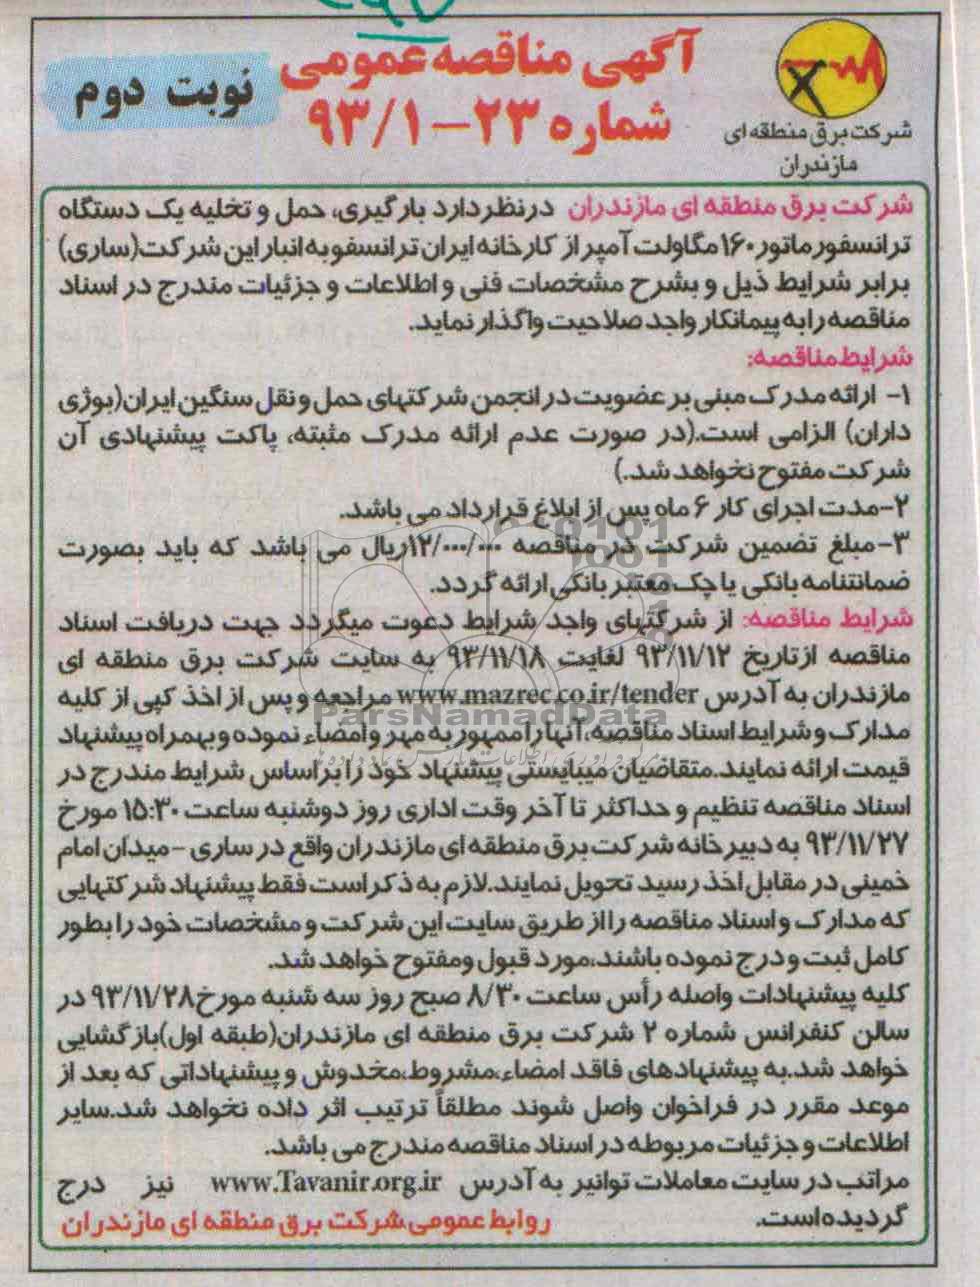 آگهی مناقصه عمومی
شماره ۲۳-۹۳/۱
نوبت دوم
شرکت برق منطقه ای
مازندران
شرکت برق منطقه ای مازندران درنظردارد بارگیری، حمل و تخلیه یک دستگاه
ترانسفورماتور ۱۶۰مگاولت آمپر از کارخانه ایران ترانسفو به انبار این شرکت(ساری)
برابر شرایط ذیل و بشرح مشخصات فنی و اطلاعات و جزئیات مندرج در اسناد
مناقصه را به پیمانکار واجد صلاحیت واگذار نماید.
شرایط مناقصه:
۱- ارائه مدرک مبنی بر عضویت در انجمن شرکتهای حمل و نقل سنگین ایران(بوژی
داران) الزامی است.(در صورت عدم ارائه مدرک مثبته، پاکت پیشنهادی آن
شرکت مفتوح نخواهد شد.)
۲-مدت اجرای کار ۶ ماه پس از ابلاغ قرارداد می باشد.
۳-مبلغ تضمین شرکت در مناقصه ۱۲/۰۰۰/۰۰۰ریال می باشد که باید بصورت
ضمانتنامه بانکی یا چک معتبر بانکی ارائه گردد.
شرایط مناقصه: از شرکتهای واجد شرایط دعوت میگردد جهت دریافت اسناد
مناقصه ازتاریخ ۹۳/۱۱/۱۲ لغایت ۹۳/۱۱/۱۸ به سایت شرکت برق منطقه ای
مازندران به آدرس www.mazrec.co.ir/tender مراجعه و پس از اخذ کپی از کلیه
مدارک و شرایط اسناد مناقصه،آنها را ممهور به مهر و امضاء نموده و بهمراه پیشنهاد
قیمت ارائه نمایند.متقاضیان میبایستی پیشنهاد خود را براساس شرایط مندرج در
اسناد مناقصه تنظیم و حداکثر تا آخر وقت اداری روز دوشنبه ساعت ۱۵:۳۰ مورخ
۹۳/۱۱/۲۷ به دبیرخانه شرکت برق منطقه ای مازندران واقع در ساری -میدان امام
خمینی در مقابل اخذ رسید تحویل نمایند.لازم به ذکر است فقط پیشنهاد شرکتهایی
که مدارک و اسناد مناقصه را از طریق سایت این شرکت و مشخصات خود را بطور
کامل ثبت و درج نموده باشند،مورد قبول ومفتوح خواهد شد.
کلیه پیشنهادات واصله رأس ساعت ۸/۳۰ صبح روز سه شنبه مورخ ۹۳/۱۱/۲۸ در
سالن کنفرانس شماره ۲ شرکت برق منطقه ای مازندران(طبقه اول)بازگشایی
خواهد شد.به پیشنهادهای فاقد امضاء،مشروط،مخدوش و پیشنهاداتی که بعد از
موعد مقرر در فراخوان واصل شوند مطلقاً ترتیب اثر داده نخواهد شد.سایر
اطلاعات و جزئیات مربوطه در اسناد مناقصه مندرج می باشد.
مراتب در سایت معاملات توانیر به آدرس www.Tavanir.org.ir نیز درج
گردیده است.
روابط عمومی شرکت برق منطقه ای مازندران
ParsNamadData